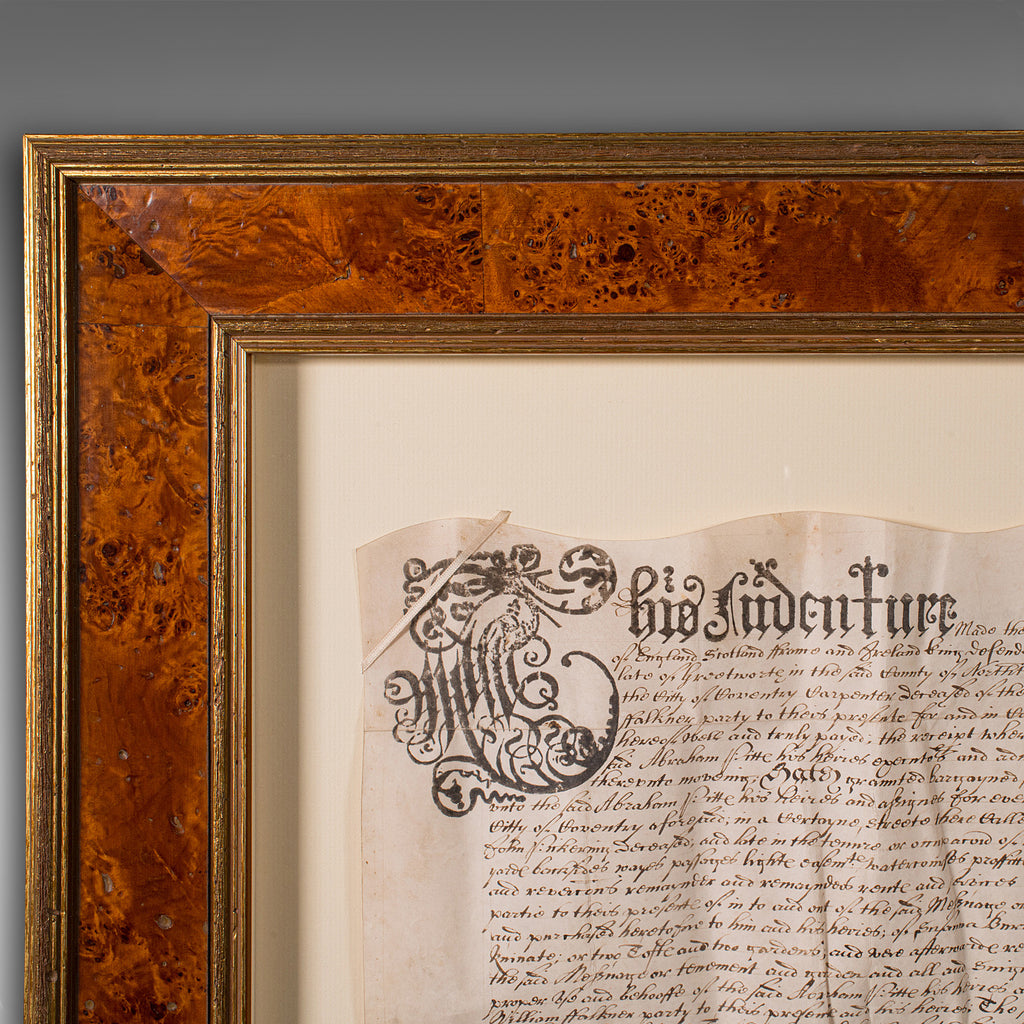 This Indenture Made the
of England Scotland ffrance and Ireland King defende
late of Greetworth in the said County of Northt
the Citty of Coventry Carpenter deceased of the
ffalkner party to theis presente for and in Co
hereof well and truly payed; the receipt wher
said Abraham his heires executors and adm
therevnto moveing; Hath graunted bargayned
vnto the said Abraham his heires and assignes for ever
Citty of Coventry aforesaid; in a certayne streete there Calle
John deceased; and late in the tenure or occupacon of
yarde backsides wayes passages lighte easemte watercourses proffitt
and revercons remaynder and remaynders rente and services
partie to theis presente of in to and out of the said Messuage or
and purchased heretofore to him and his heires; of Susanna
or two Tofte and two gardens; and were afterwarde re
the said Messuage or tenement and garden and all and
proper vse and behooffe of the said Abraham his heires a
William ffalkner party to theis present and his heires The s